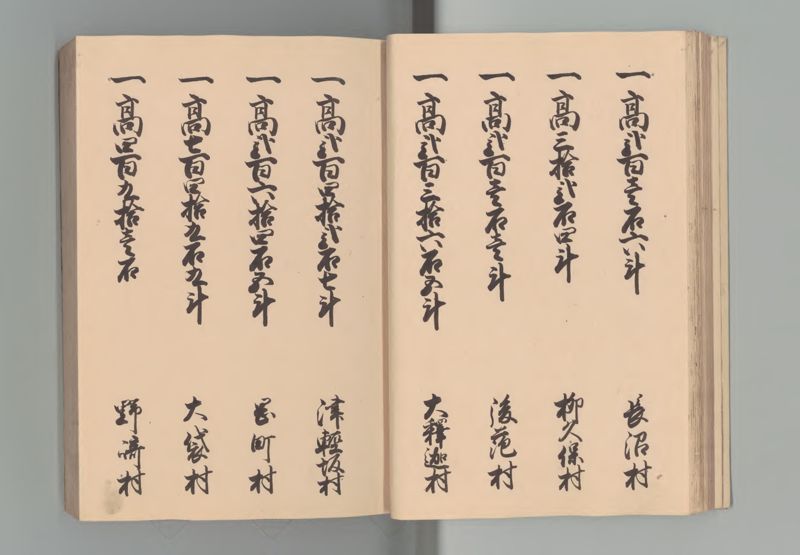 一高弐百壱石六斗 長沼村
一高三拾弐石四斗 柳久保村
一高弐百壱石壱斗 後范村
一高弐百三拾六石五斗 大釋迦村
一高弐百四拾弐石七斗 津輕坂村
一高弐百六拾四石五斗 岡町村
一高七百四拾九石九斗 大袋村
一高四百九拾壱石 野崎村